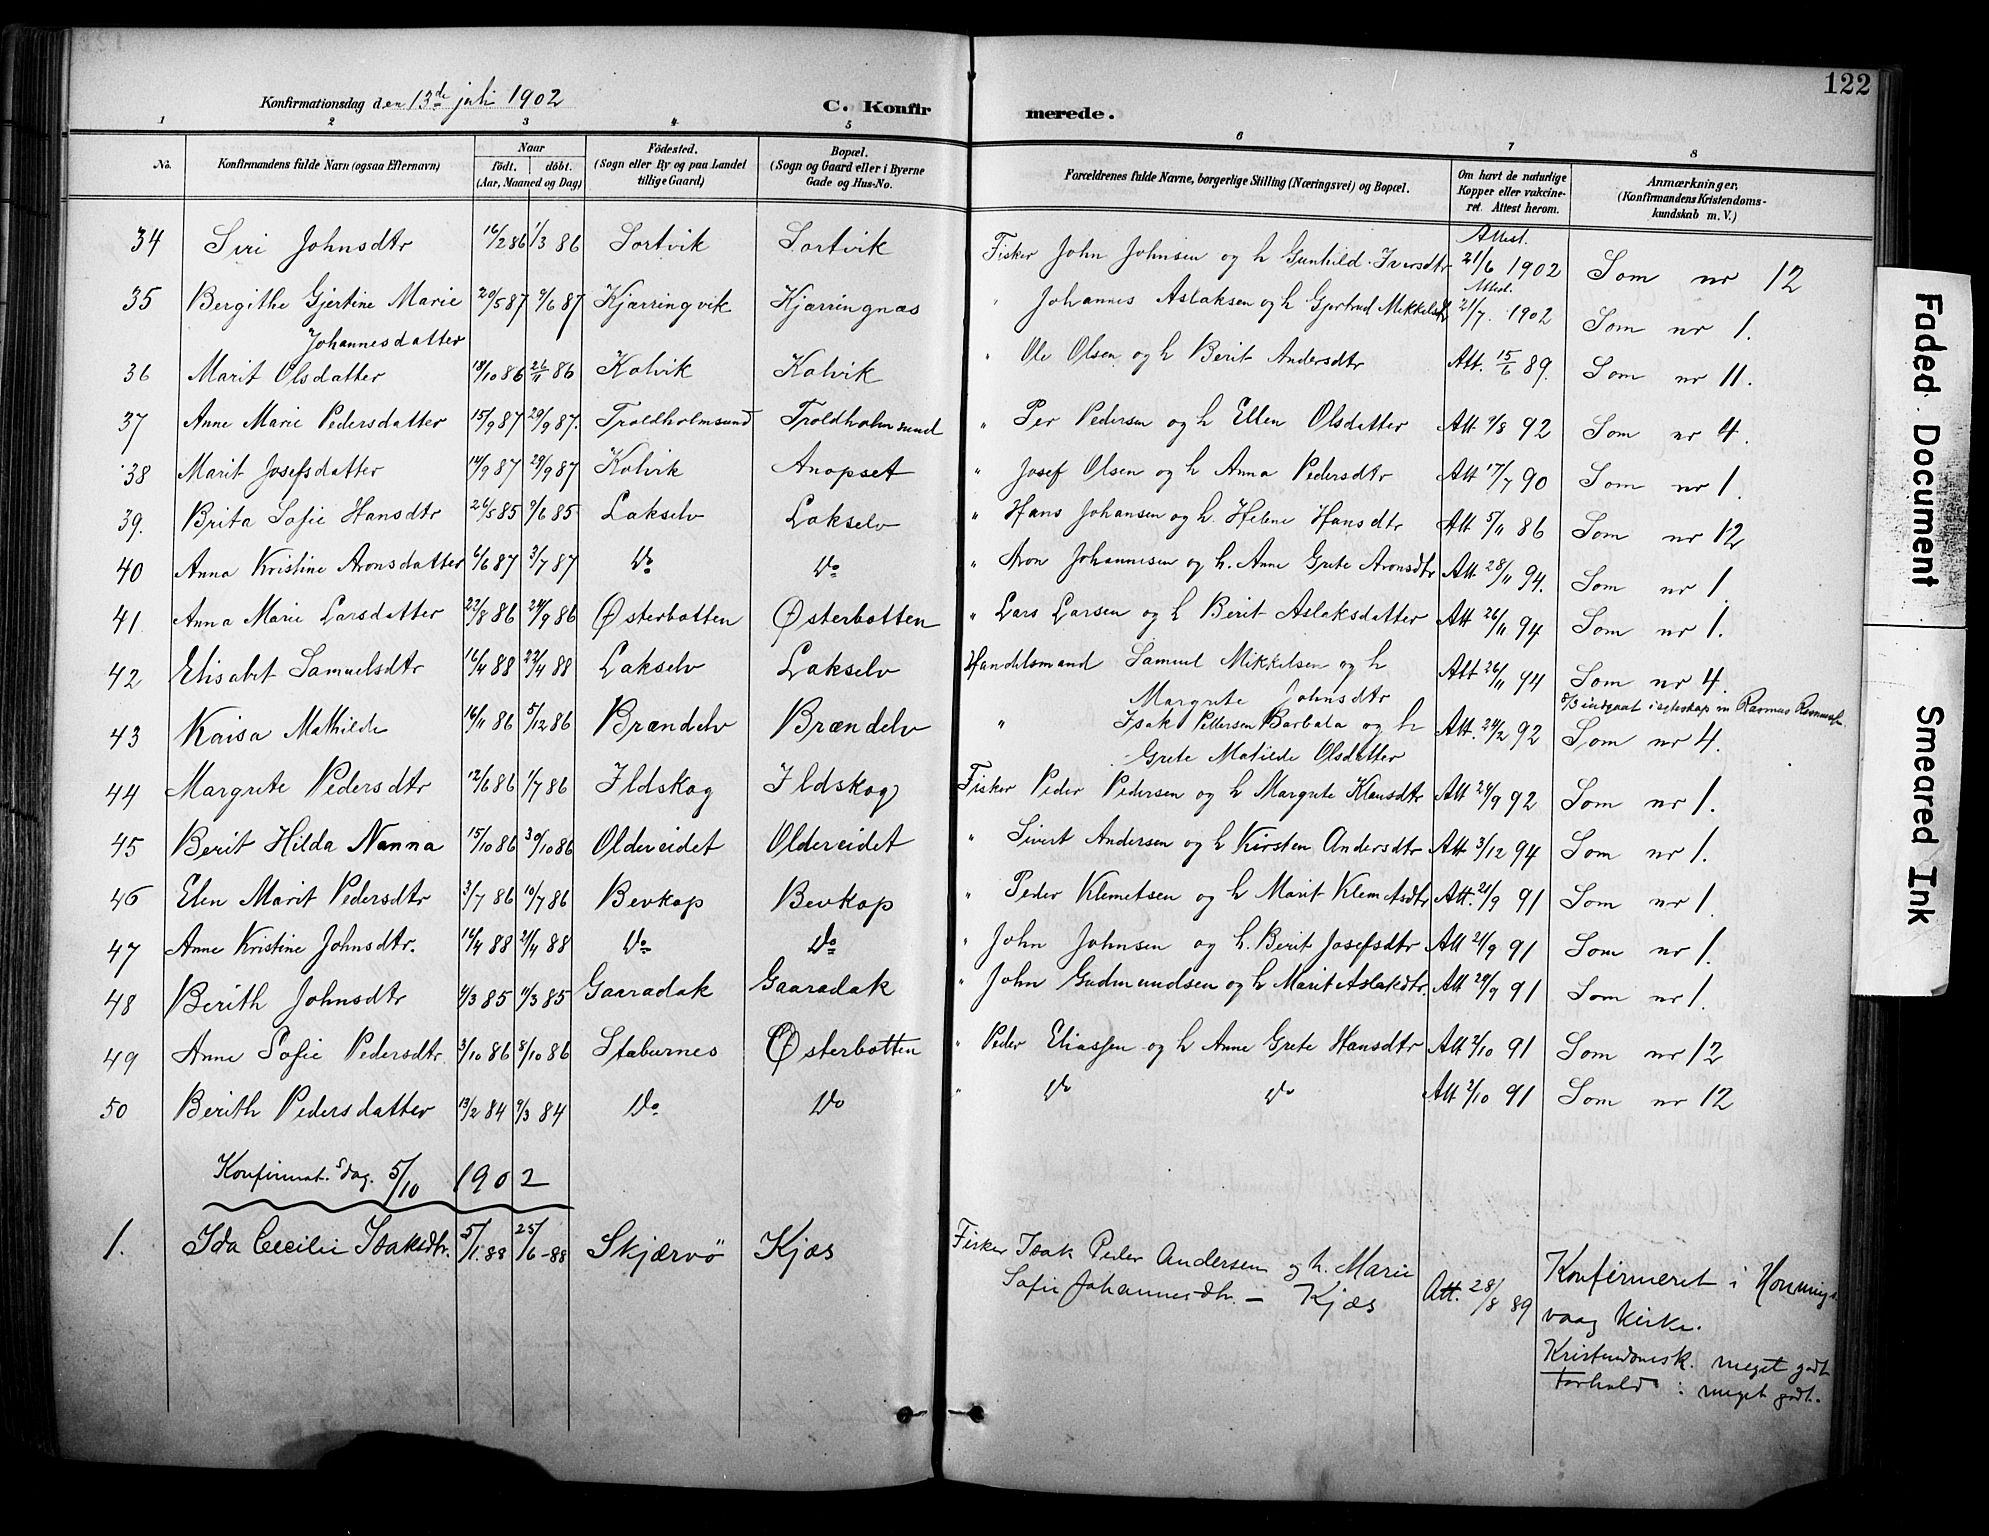 122
Konfirmationsdag den 13de juli 1902
C. Konfirmerede.
1 2 3 4 5 6 7 8
No. Konfirmandens fulde Navn (ogsaa Efternavn) Naar født. døbt. (Aar, Maaned og Dag) Fødested. (Sogn eller By og paa Landet tillige Gaard) Bopæl. (Sogn og Gaard eller i Byerne Gade og Hus-No.) Forældrenes fulde Navne, borgerlige Stilling (Næringsvei) og Bopæl. Om havt de naturlige Kopper eller vakcineret. Attest herom. Anmærkninger. (Konfirmandens Kristendomskundskab m. V.)
34 Siri Johnsdtr 16/2 86 1/3 86 Sortvik Sortvik Fisker John Johnsen og h Gunhild Iversdtr Attest. 21/6 1902 Som nr 12
35 Bergithe Gjertine Marie Johannesdatter 20/5 87 /6 87 Kjærringvik Kjærringnæs " Johannes Aslaksen og h Gjertrud Mikkelsdtr Attest. 21/7. 1902 Som nr 1.
36 Marit Olsdatter 18/10 86 26/11 86 Kolvik Kolvik " Ole Olsen og h Berit Andersdtr Att. 15/6 89. Som nr 11.
37 Anne Marie Pedersdatter 15/9 87 29/9 87. Troldholmsund Troldholmsund " Per Pedersen og h Ellen Olsdatter Att /8 92 Som nr 4.
38 Marit Josefsdatter 14/9 87 29/9 87 Kolvik Anopset " Josef Olsen og h Anna Pedersdtr Att 17/7 90 Som nr 1.
39. Brita Sofie Hansdtr 26/5 85 /6 85 Lakselv Lakselv " Hans Johansen og h. Helene Hansdtr Att 5/11 86 Som nr 12
40 Anna Kristine Aronsdatter 6/6 87 3/7 87 Do Do " Aron Johannesen og h. Anne Grete Aronsdtr Att 28/11 94. Som nr 1.
41 Anna Marie Larsdatter 22/8 86 24/9 86 Østerbotten Østerbotten " Lars Larsen og h Berit Aslaksdatter Att 26/11 94 Som nr 1.
42 Elisabet Samuelsdtr 16/4 88 22/4 88 Lakselv Lakselv Handelsmand Samuel Mikkelsen og h Margrete Johnsdtr Att 26/11 94 Som nr 4.
43 Kaisa Mathilde 16/11 86 5/12 86 Brændelv Brændelv " Isak Pettersen Barbala og h Grete Matilde Olsdatter Att. 24/2 92 indgaat i egteskap m Rasmus Som nr 4.
44 Margrete Pedersdtr 12/6 86 1/7 86 Ildskog Ildskog Fisker Peder Pedersen og h Margrete Klausdtr Att 24/9 92 Som nr 1.
45 Berit Hilda Nanna 15/10 86 30/10 86 Oldereidet Oldereidet " Sivert Andersen og h Kirsten Andersdtr Att 3/12 94 Som nr 1.
46 Elen Marit Pedersdtr 3/7 86 10/7 86 Bevkop Bevkop " Peder Klemetsen og h Marit Klemetsdtr Att. 21/9 91 Som nr 1.
47 Anne Kristine Johnsdtr. 16/4 88 21/4 88 Do Do " John Johnsen og h. Berit Josefsdtr Att 21/9 91 Som nr 1.
48 Berith Johnsdtr /3 85 /3 85 Gaaradak Gaaradak " John Gudmundsen og h Marit Aslaksdtr. Att 24/9 91 Som nr 1.
49 Anne Sofie Pedersdtr. 3/10 86 8/10 86 Staburnes Østerbotten " Peder Eliassen og h Anne Grete Hansdtr Att 2/10 91 Som nr 12
50 Berith Pedersdatter 13/2 84 9/3 84 Do Do " Do Do Att 2/10 91 Som nr 12
Konfirmat.sdag. 5/10 1902
1. Ida Cecilie Isaksdtr. 5/1. 88 25/6-88 Skjærvö Kjæs Fisker Isak Peder Andersen og h. Marie Sofie Johannesdtr. – Kjæs Att. 28/8 89 Konfirmeret i Honningsvaag Kirke.
Kristendomsk. meget godt
Forhold : meget godt.
Faded Document
Smeared Ink